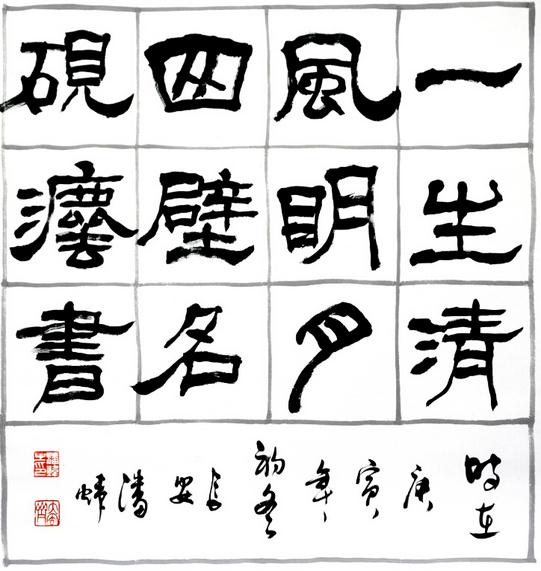 一生清
風眀月
四壁名
硯灋書
時在
庚
寅
年
初冬
長
安
潘